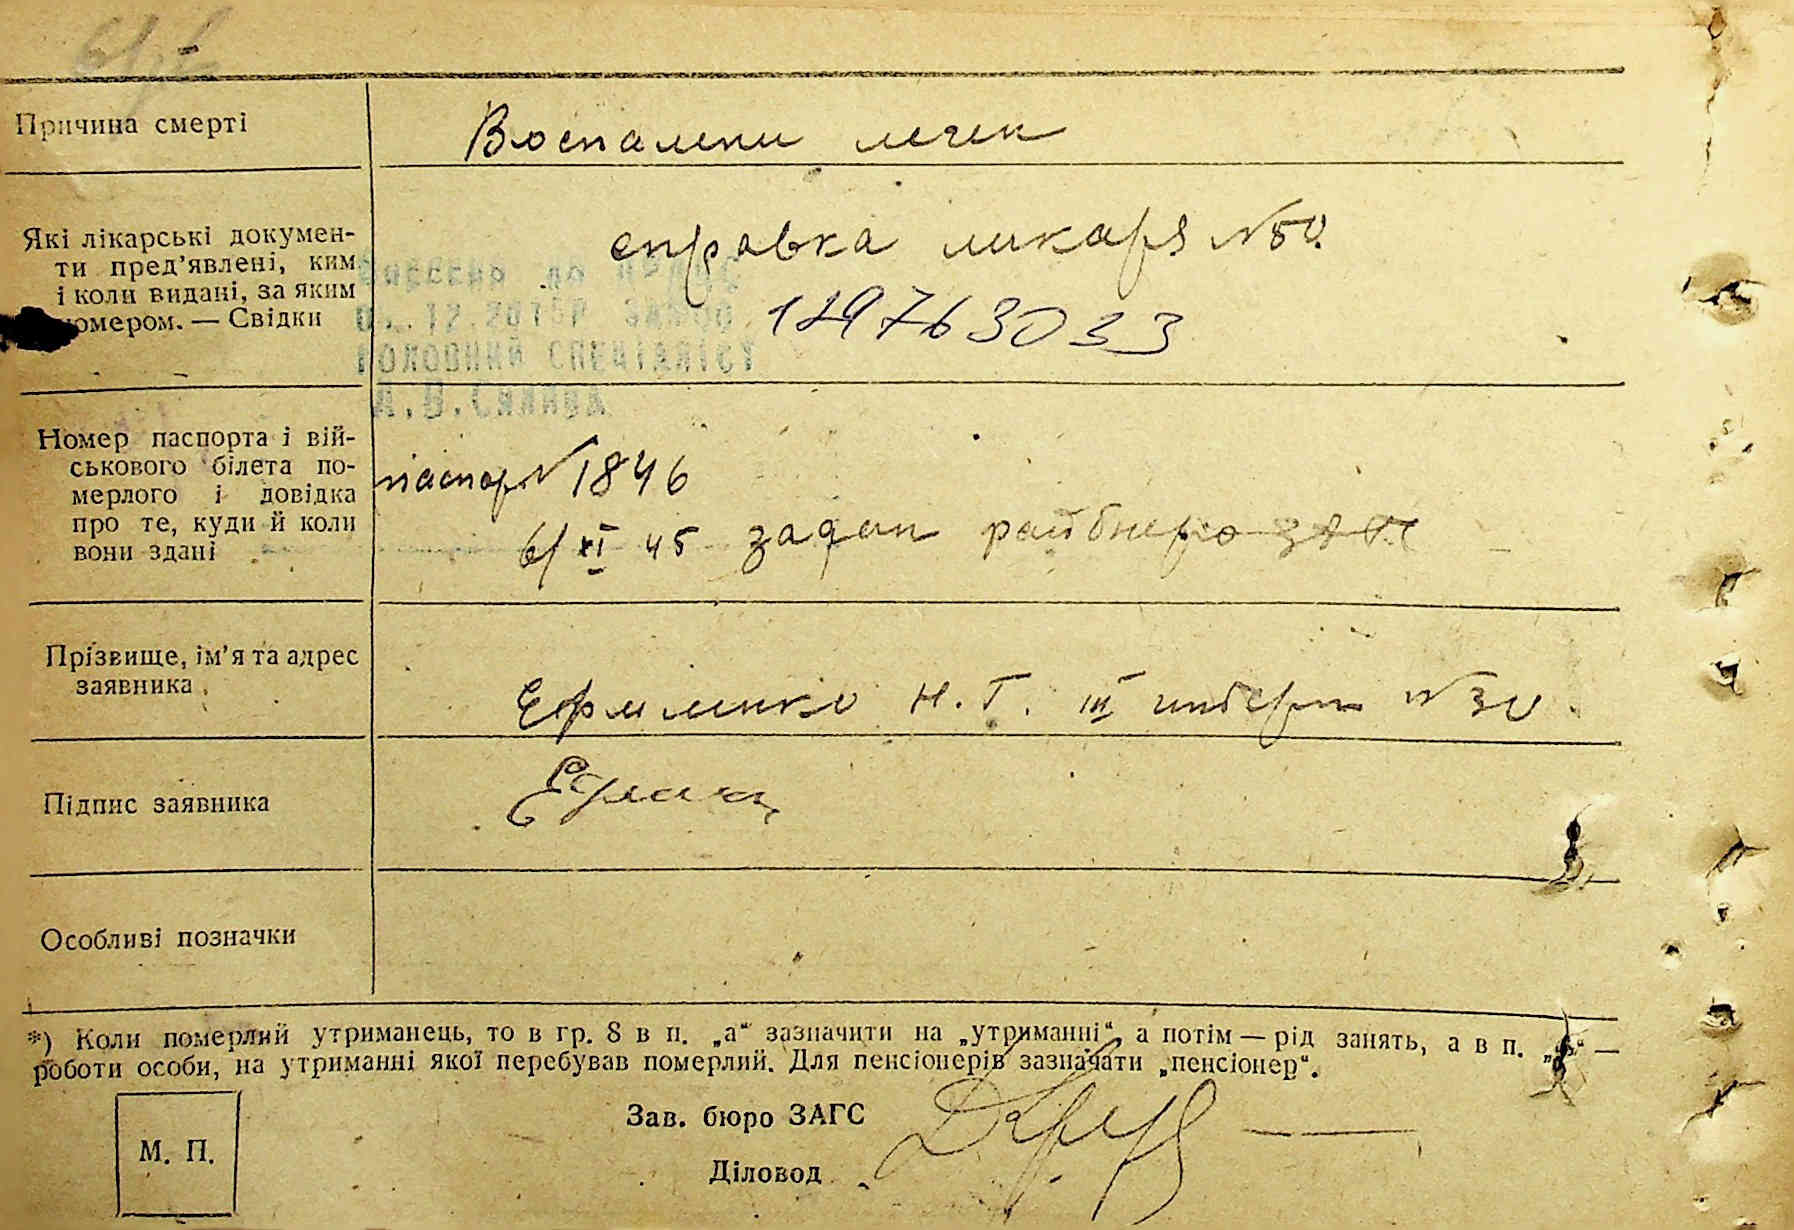 Причина смерті
Воспалени легик
Які лікарські докумен-
ти пред’явлені, ким
і коли видані, за яким
номером. — Свідки
справка ликаря №50.
12.2015р
ГОЛОВНИЙ СПЕЦІАЛІСТ
Номер паспорта і вій-
ськового білета по-
мерлого і довідка
про те, куди й коли
вони здані
паспор № 1846
6/XI 45 здан райбюро ЗАГС
Прізвище, ім’я та адрес
заявника
Ермиленко Н. Г. III №30.
Підпис заявника
Особливі позначки
*) Коли померлий утриманець, то в гр. 8 в п. „а“ зазначити на „утриманні“, а потім — рід занять, а в п. —
роботи особи, на утриманні якої перебував померлий. Для пенсіонерів зазначати „пенсіонер“.
М. П.
Зав. бюро ЗАГС
Діловод